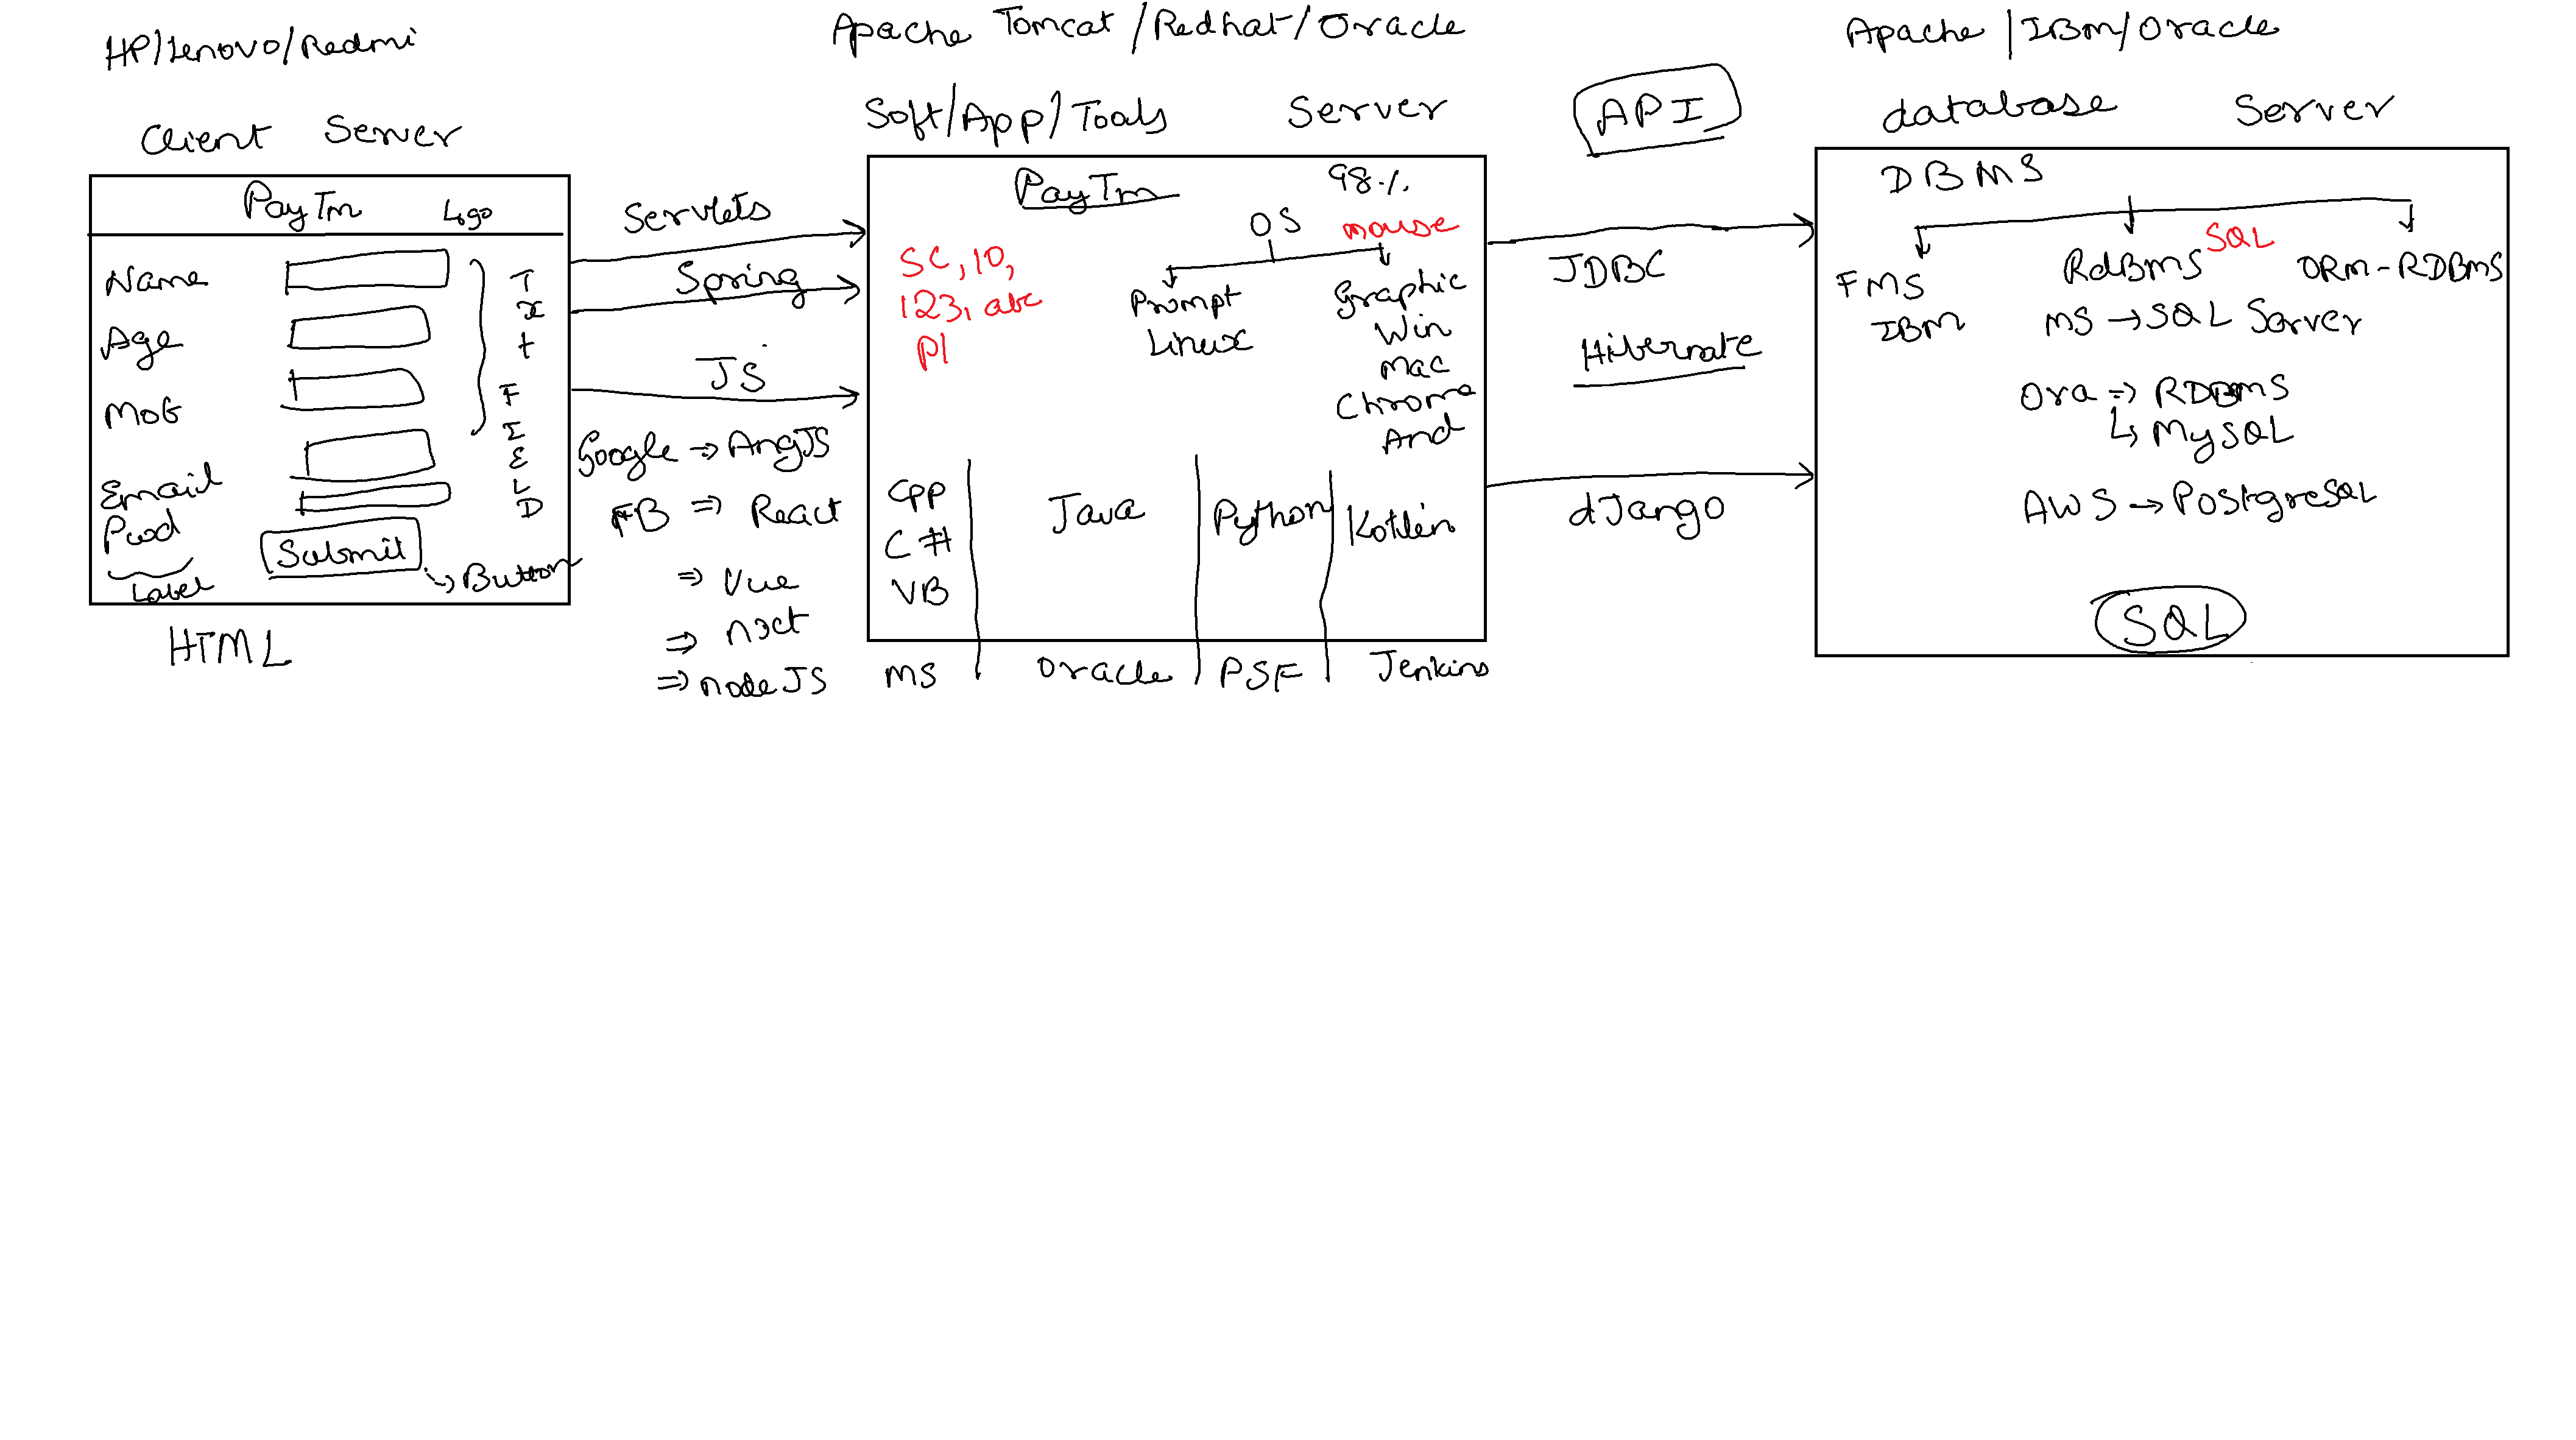 HP/Lenovo/Redmi
Client Server
PayTm Logo
Name
Age
Mob
Email
Pwd
Label
Submit
Button
Txt
FIELD
HTML
Servlets
Spring
JS
Google → AngJS
FB ⇒ React
⇒ Vue
⇒ next
⇒ nodeJS
Apache Tomcat/Redhat/Oracle
Soft/App/Tools Server
PayTm
98%
OS
mouse
SC, 10,
123, abc
P1
Prompt
Linux
Graphic
Win
Mac
Chrome
And
CPP
C#
VB
Java
Python
Kotlin
MS
Oracle
PSF
Jenkins
API
JDBC
Hibernate
dJango
Apache/IBM/Oracle
database Server
DBMS
FMS
IBM
RdBMS SQL
ORM-RDBMS
MS → SQL Server
Ora ⇒ RDBMS
↳ MySQL
AWS → PostgreSQL
SQL